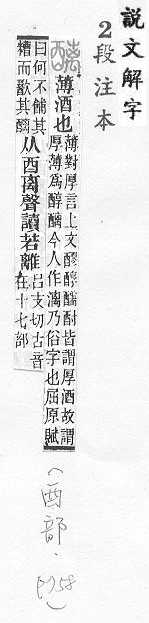 說文解字
2段注本
醨
薄酒也
薄對厚言上文醪醇醹酎皆謂厚酒故謂
厚薄爲醇醨今人作漓乃俗字也屈原賦
曰何不餔其
糟而歠其醨
从酉离聲讀若離
呂支切古音
在十七部
(酉部、P758)